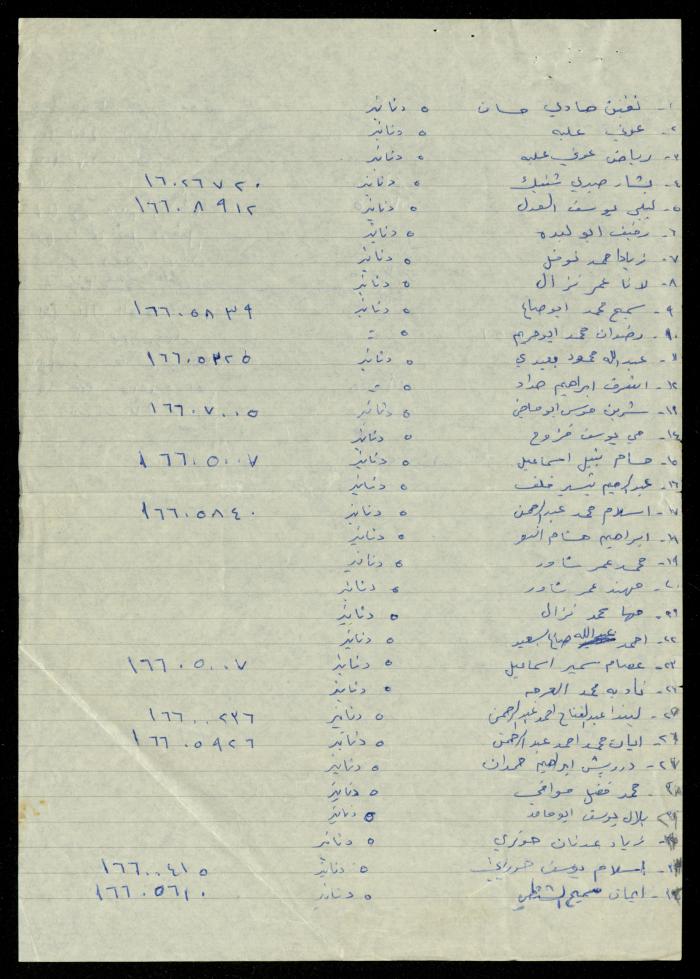 ١- تغنن هادي حسان ٥ دنانير
٢- عوني عليه ٥ دنانير
٣- رياض عوني عليه ٥ دنانير
٤- بشار صبري شتيك ٥ دنانير ١٦٠٢٦٧٢٠
٥- ليلى يوسف العدل ٥ دنانير ١٦٦٠٨٩١٢
٦- ابو لبده ٥ دنانير
٧- زياد احمد نوفل ٥ دنانير
٨- لانا عمر نزال ٥ دنانير
٩- سميح محمد ابو صالح ٥ دنانير ١٦٦٠٥٨٣٩
١٠- رضوان محمد ابو مريم ٥ =
١١- عبدالله محمود بعيدي ٥ دنانير ١٦٦٠٥٣٢٥
١٢- اشرف ابراهيم حداد ٥
١٣- شرين ابو ماضي ٥ دنانير ١٦٦٠٧٠٠٥
١٤- مي يوسف فروح ٥ دنانير
١٥- حسام نبيل اسماعيل ٥ دنانير ١٦٦٠٥٠٠٧
١٦- عبدالرحيم تيسير خلف ٥ دنانير
١٧- اسلام محمد عبدالرحمن ٥ دنانير ١٦٦٠٥٨٤٠
١٨- ابراهيم هشام ٥ دنانير
١٩- محمد عمر شاور ٥ دنانير
٢٠- مهند عمر شاور ٥ دنانير
٢١- مها محمد نزال ٥ دنانير
٢٢- احمد صالح سعيد ٥ دنانير
٢٣- عصام سمير اسماعيل ٥ دنانير ١٦٦٠٥٠٠٧
٢٤- ناديه محمد العرجه ٥ دنانير
٢٥- ليندا عبدالفتاح احمد عبدالرحمن ٥ دنانير ١٦٦٠٠٢٣٦
٢٦- ايات محمد احمد عبدالرحمن ٥ دنانير ١٦٦٠٥٩٢٦
٢٧- درويش ابراهيم حمدان ٥ دنانير
٢٨- محمد فضل موافي ٥ دنانير
٢٩- بلال يوسف ابو حامد ٥ دنانير
زياد عدنان حوتري ٥ دنانير
اسلام يوسف حوراني ٥ دنانير ١٦٦٠٠٤١٥
ايمان سميح الشنطي ٥ دنانير ١٦٦٠٥٦١٠